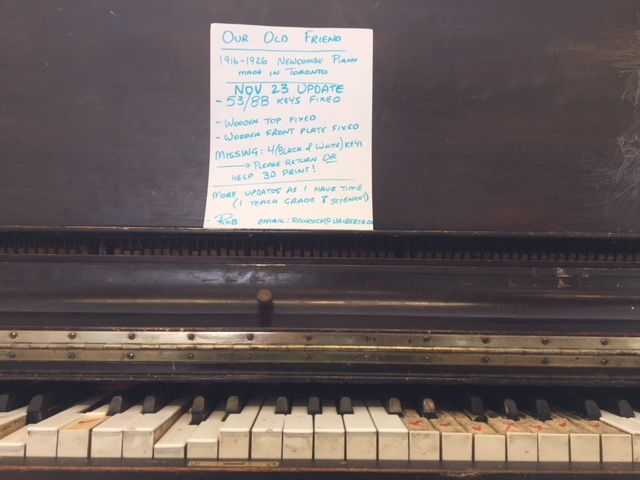 Our Old Friend
1916-1926 Newcombe Piano
made in Toronto
Nov 23 Update
- 53/88 keys fixed
- Wooden top fixed
- Wooden front plate fixed
Missing: 4 (Black & White) keys
→ Please return or
help 3D print!
More updates as I have time
(I teach grade 8 science!)
- Rob email: raincock@ualberta.ca